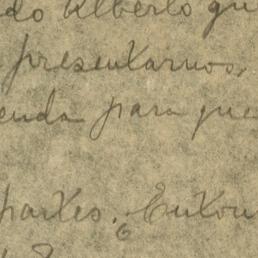 do Alberto qu
presentarnos,
enda para que
partes. Enton